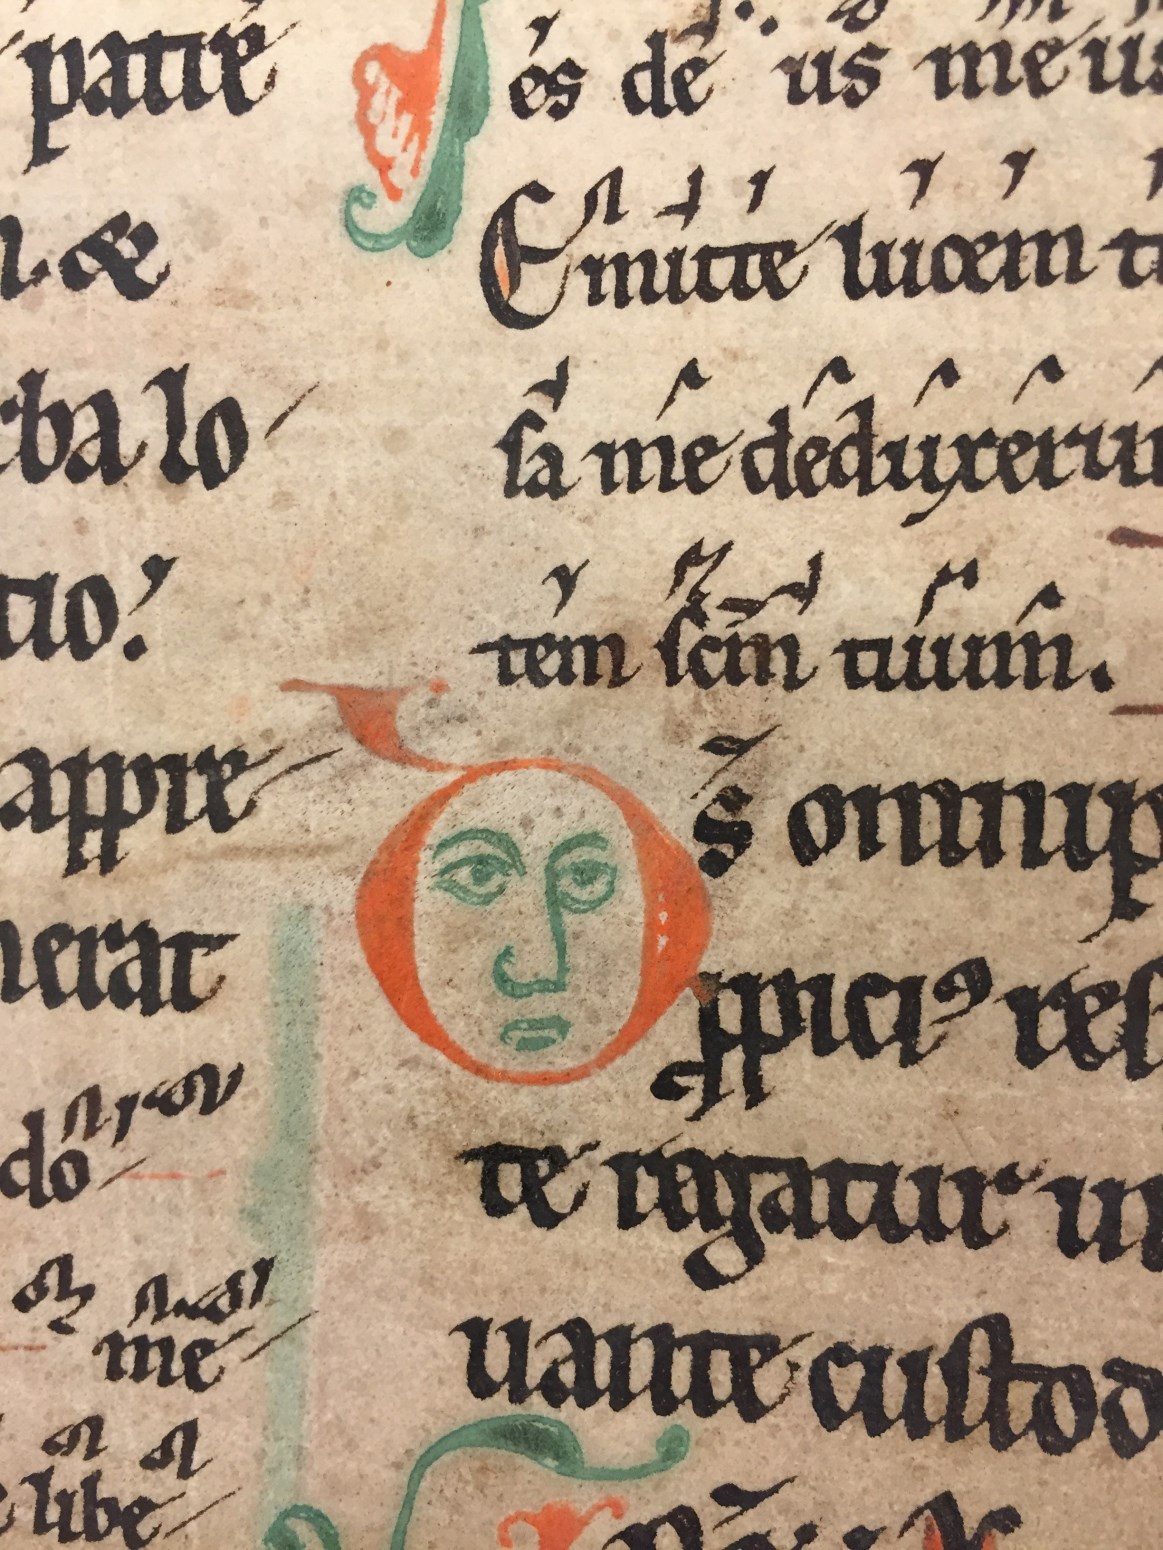 patre
&
ba lo
tio.
appre
nerat
do
me
libe
es de us meus
Emitte lucem
sa me deduxerun
tem scm tuum.
Ds omnip
ppici⁹ res
te regatur
uante custod